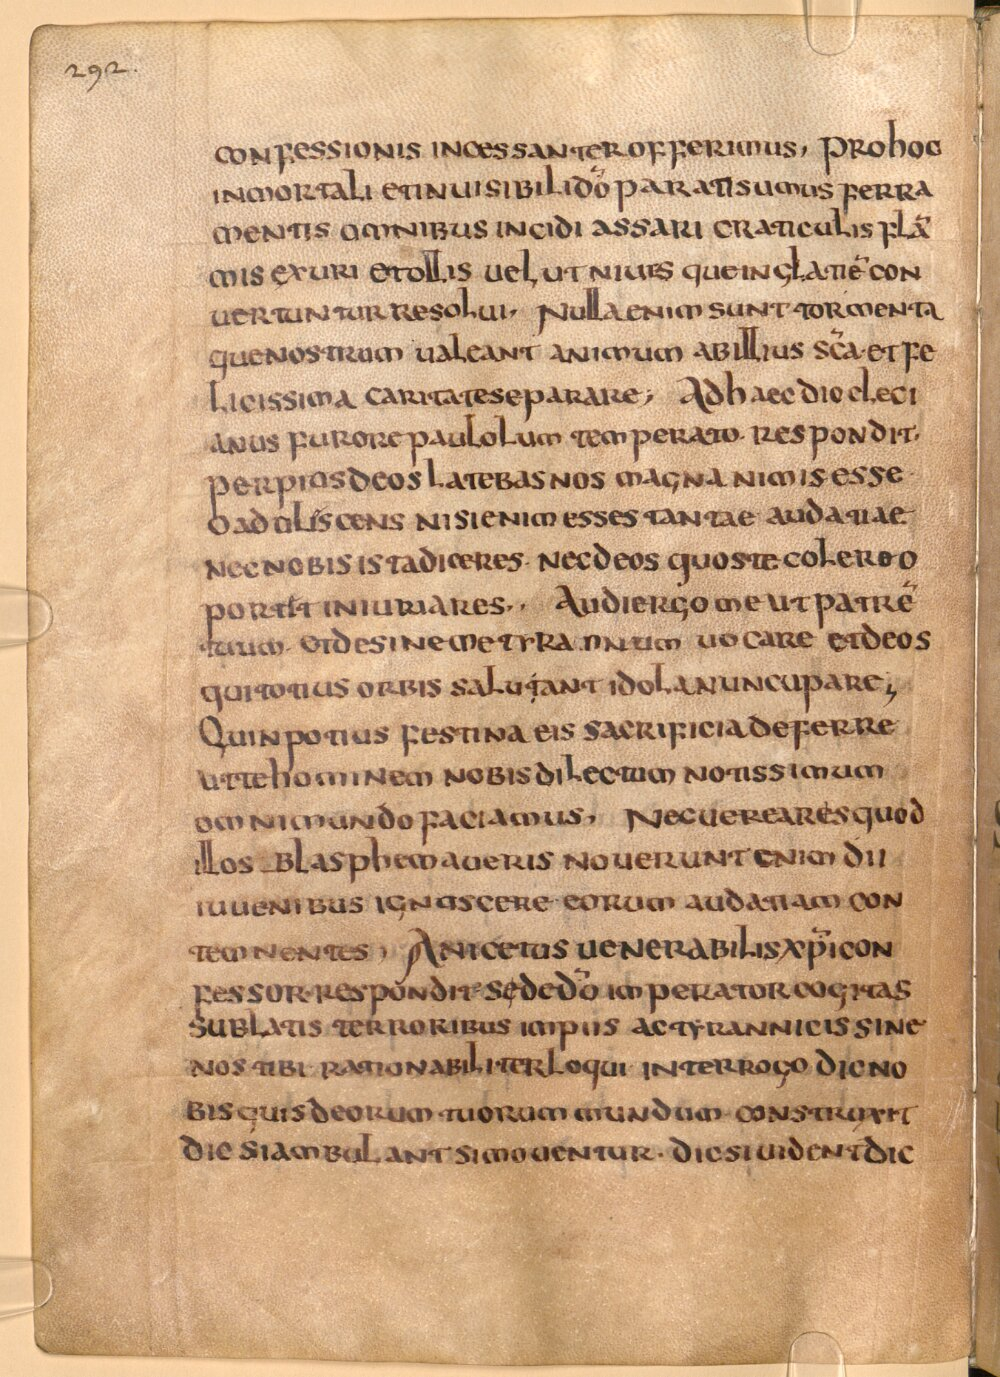 292.
confessionis incessanter offerimus, Pro hoc
inmortali et inuisibili dõ parati sumus ferra
mentis omnibus incidi assari craticulis flã
mis exuri et ollis uelut niues que in glatiẽ con
uertuntur resolui, Nulla enim sunt tormenta
que nostrum ualeant animum ab illius sc̃a et fe
licissima caritate separare; Ad haec diocleci
anus furore paulolum temperato. respondit.
per pios deos latebas nos magnanimis esse
o adoliscens nisi enim esses tantae audatiae
nec nobis ista diceres. nec deos quos te colere o
portet iniuriares., Audi ergo me ut patrẽ
tuum. et desine me tyrannum uocare et deos
qui totius orbis salutant idola nuncupare;
Quin potius festina eis sacrificia deferre
ut te hominem nobis dilectum notissimum
omni mundo faciamus, Nec uereareris quod
illos blasphemaueris nouerunt enim dii
iuuenibus ignoscere eorum audatiam con
temnentes, Anicetus uenerabilis xp̃i con
fessor respondit. sed edõ imperator cogitas
sublatis terroribus impiis ac tyrannicis sine
nos tibi rationabiliter loqui interrogo dic no
bis quis deorum tuorum mundum construxit
dic si ambulant si mouentur. dic si uident dic